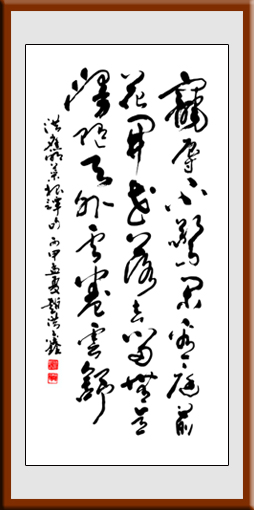 寵辱不驚閑看庭前
花開花落去留無意
漫隨天外云卷雲舒
洪應明菜根譚句丙申孟夏